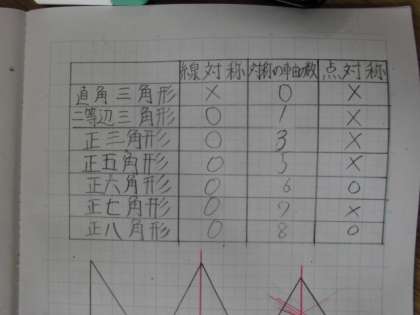 線対称 対称の軸の数 点対称
直角三角形 × 0 ×
二等辺三角形 ○ 1 ×
正三角形 ○ 3 ×
正五角形 ○ 5 ×
正六角形 ○ 6 ○
正七角形 ○ 7 ×
正八角形 ○ 8 ○